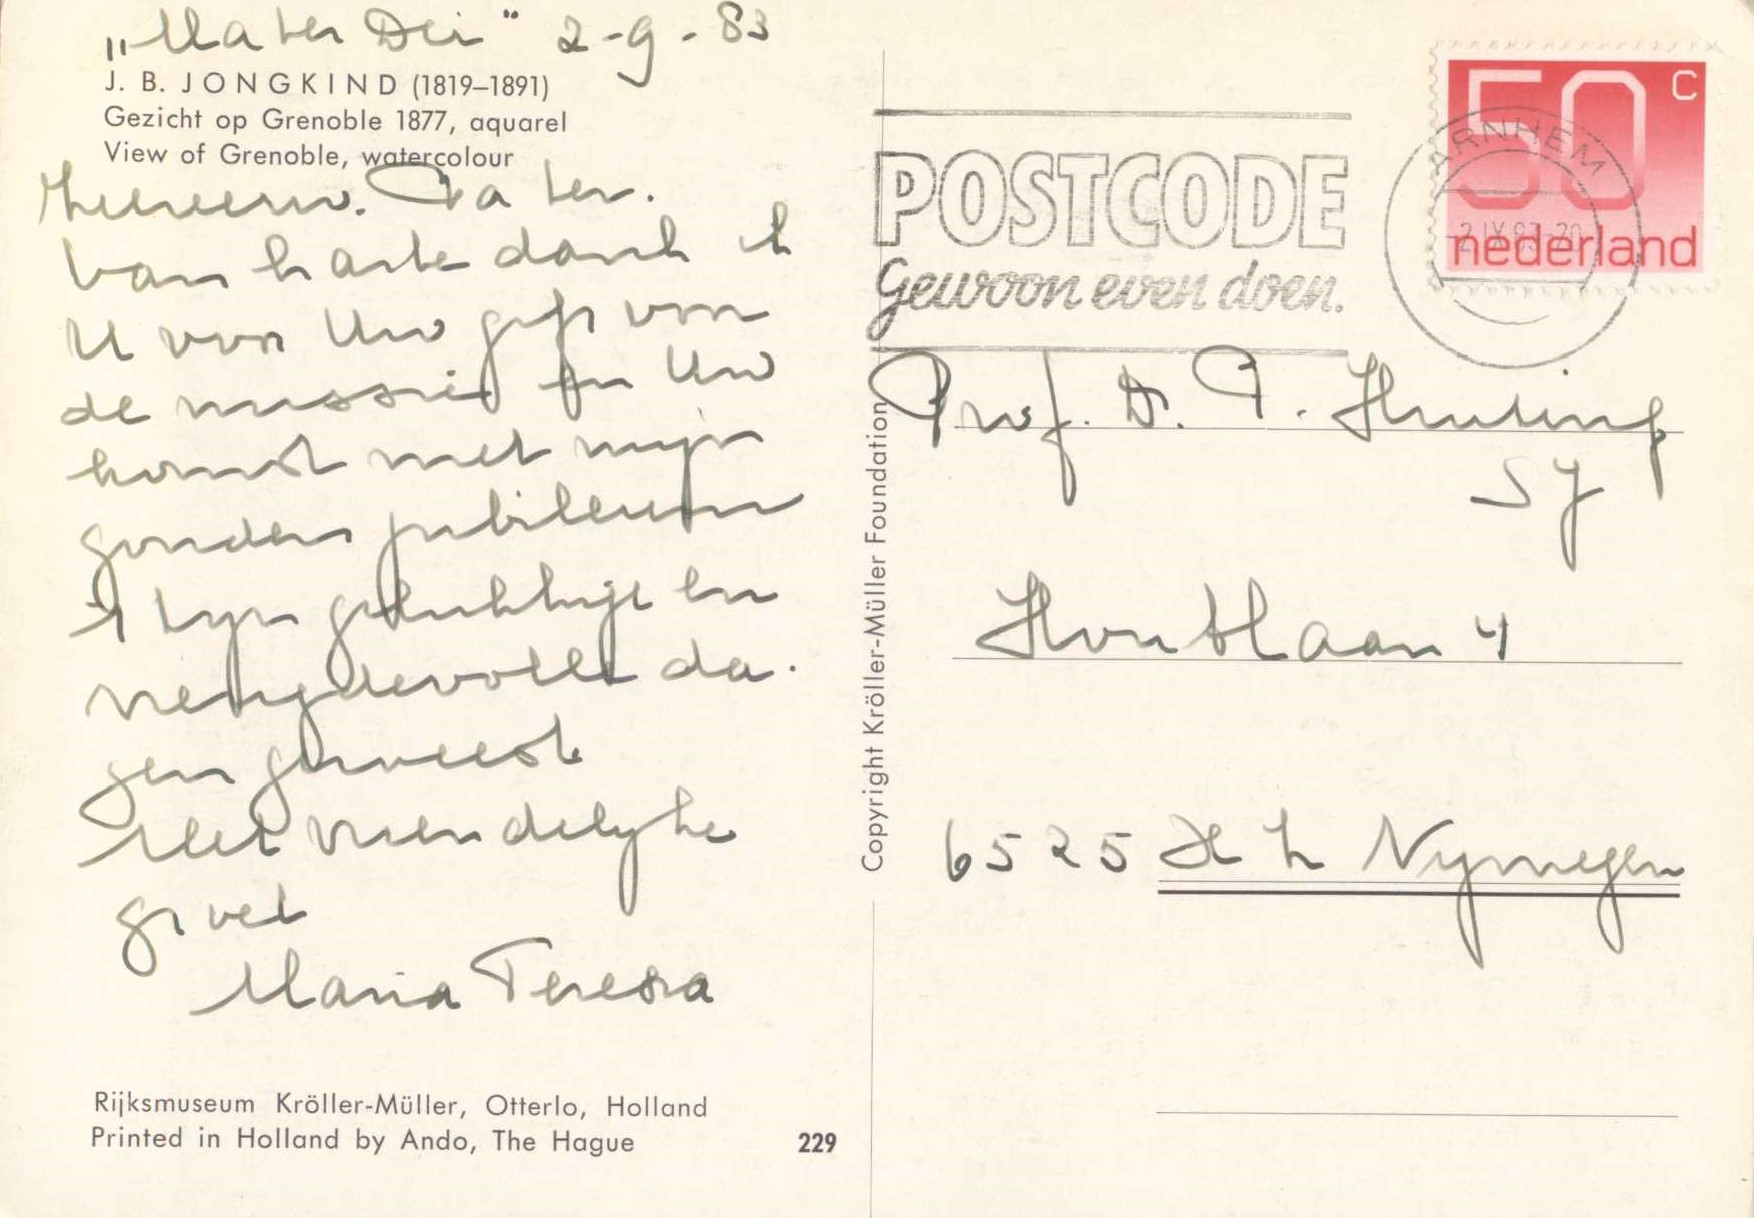 „Mater Dei" 2-9-83
J. B. JONGKIND (1819–1891)
Gezicht op Grenoble 1877, aquarel
View of Grenoble, watercolour
Zeereerw. Pater.
Van harte dank ik
U voor Uw gift voor
de missie en Uw
komst met mijn
gouden jubileum
't zijn gelukkige en
vreugdevolle da-
gen geweest
Met vriendelyke
groet
Maria Teresa
Rijksmuseum Kröller-Müller, Otterlo, Holland
Printed in Holland by Ando, The Hague
229
Copyright Kröller-Müller Foundation
POSTCODE
Gewoon even doen.
ARNHEM
2 IX 83-20
50 c
nederland
Prof. Dr. P.
SJ
Houtlaan 4
6525 Nymegen